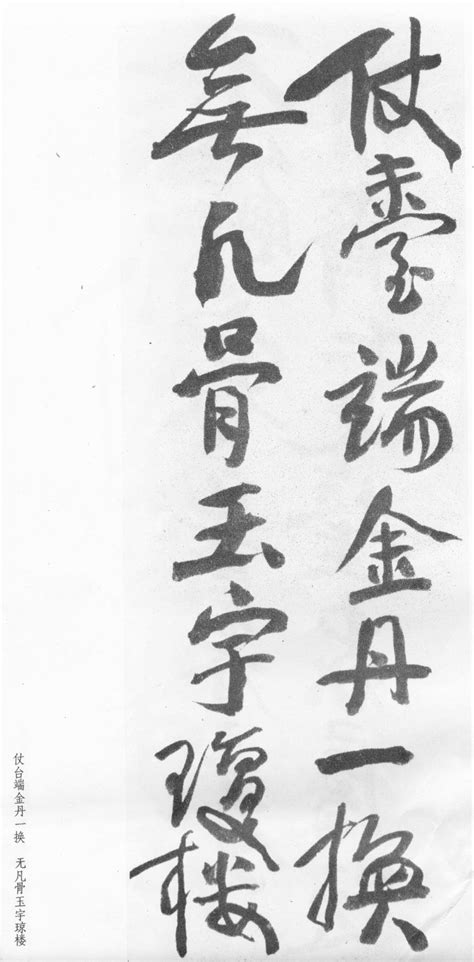 仗臺端金丹一換
無凡骨玉宇瓊樓
仗台端金丹一换　无凡骨玉宇琼楼